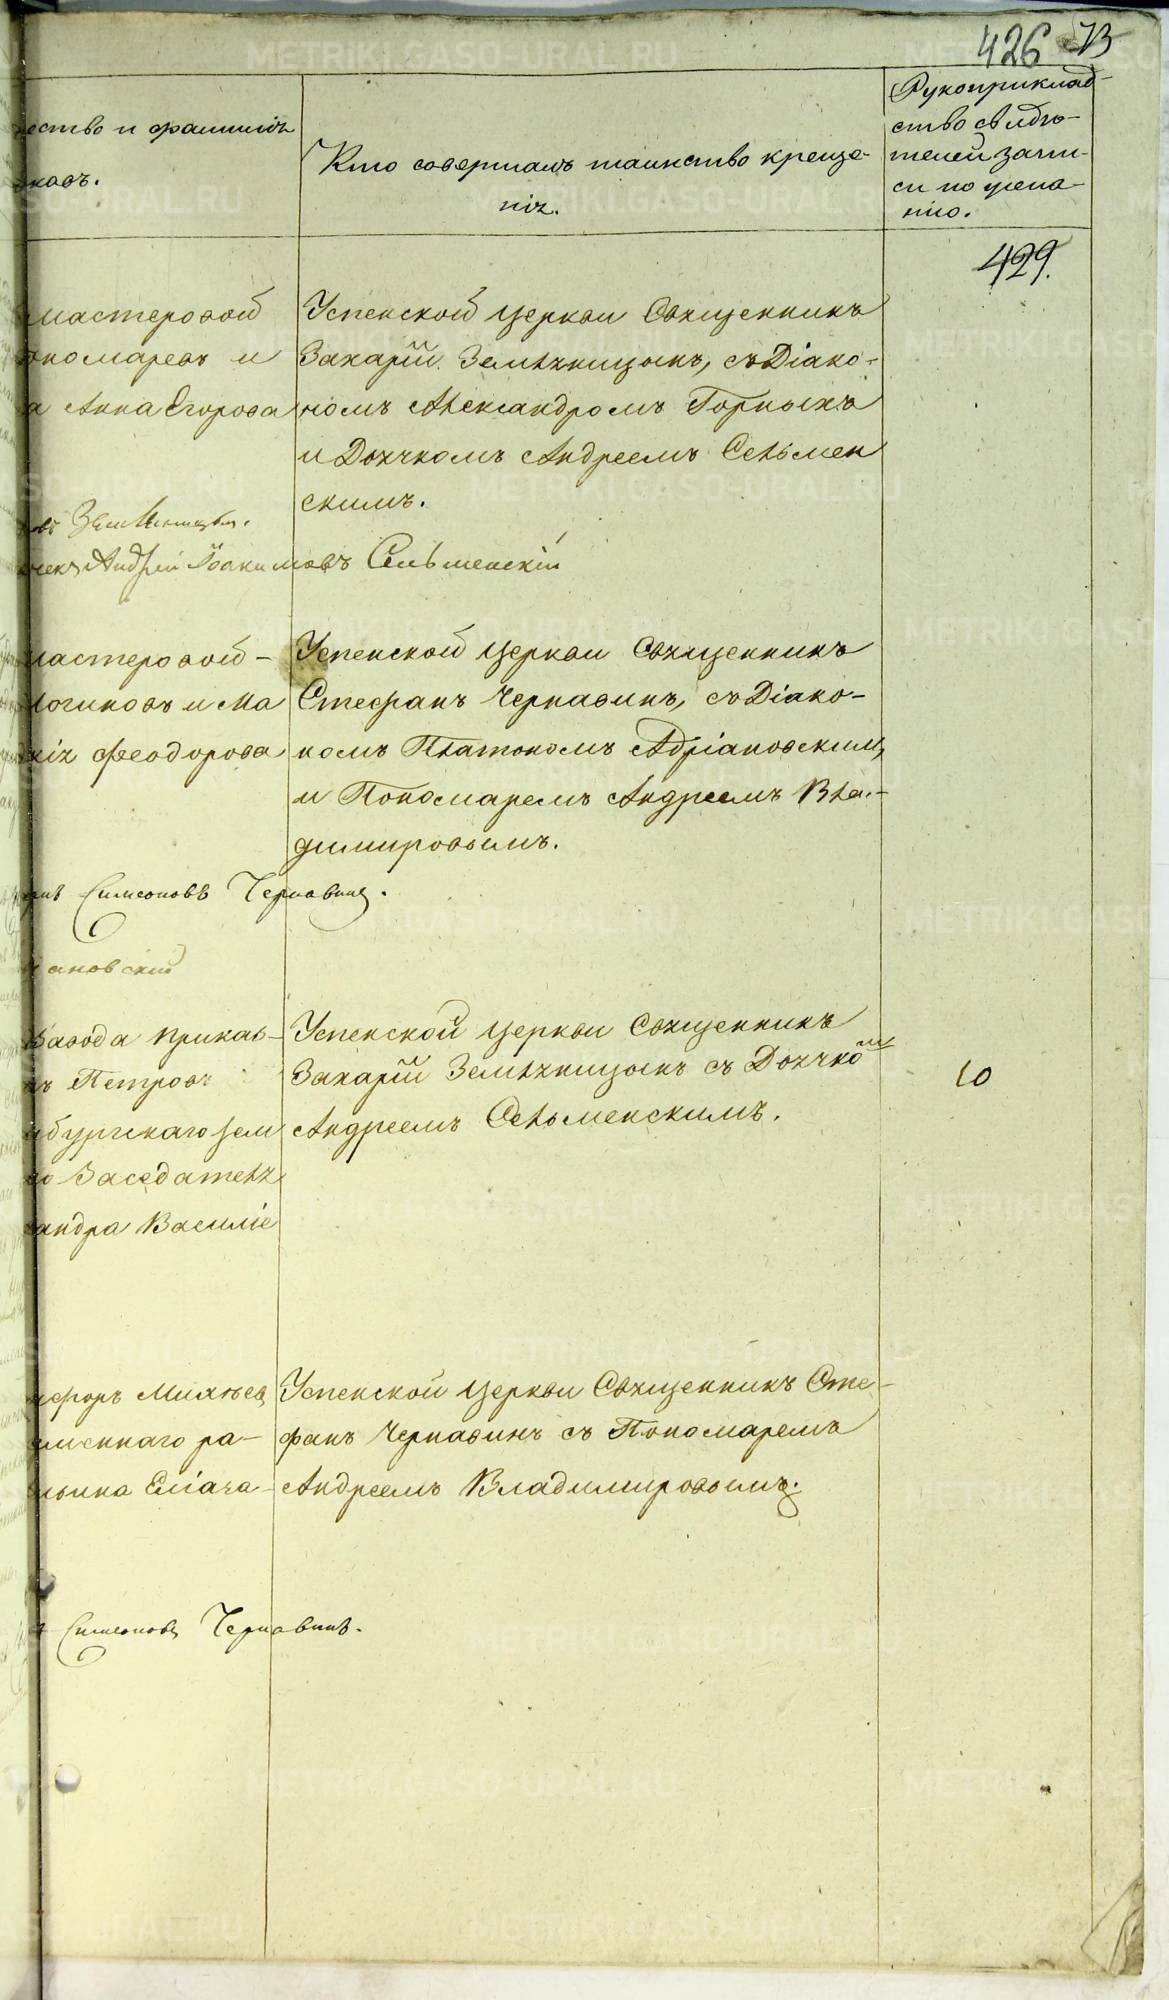 426 73
ество и фамилія
иковъ.
Кто совершалъ таинство креще-
нія.
Рукоприклад-
ство свидѣ-
телей запи-
си по жела-
нію.
429.
мастеровой
ономаревъ и
а Анна Егорова
Успенской церкви Священникъ
Захарій Земляницынъ, съ Діако-
номъ Александромъ Горныхъ
и Дьячкомъ Андреемъ Сельмен
скимъ.
Андрей Іоакимовъ Сельменскій
мастеровой -
Логиновъ и Ма
кія Феодорова
Успенской церкви Священникъ
Стефанъ Чернавинъ, съ Діако-
номъ Платономъ Адріановскимъ,
и Пономаремъ Андреемъ Вла-
димировымъ.
Симеоновъ Чернавинъ.
ановскій
Завода приказ-
ъ Петровъ
бургскаго зем
го Заседателя
андра Василіе
Успенской церкви Священникъ
Захарій Земляницынъ съ Дьячкомъ
Андреемъ Сельменскимъ.
10
ифоръ Михѣев
еменнаго ра-
Успенской церкви Священникъ Сте-
фанъ Чернавинъ съ Пономаремъ
Андреемъ Владимировымъ.
Симеоновъ Чернавинъ.
METRIKI.GASO-URAL.RU